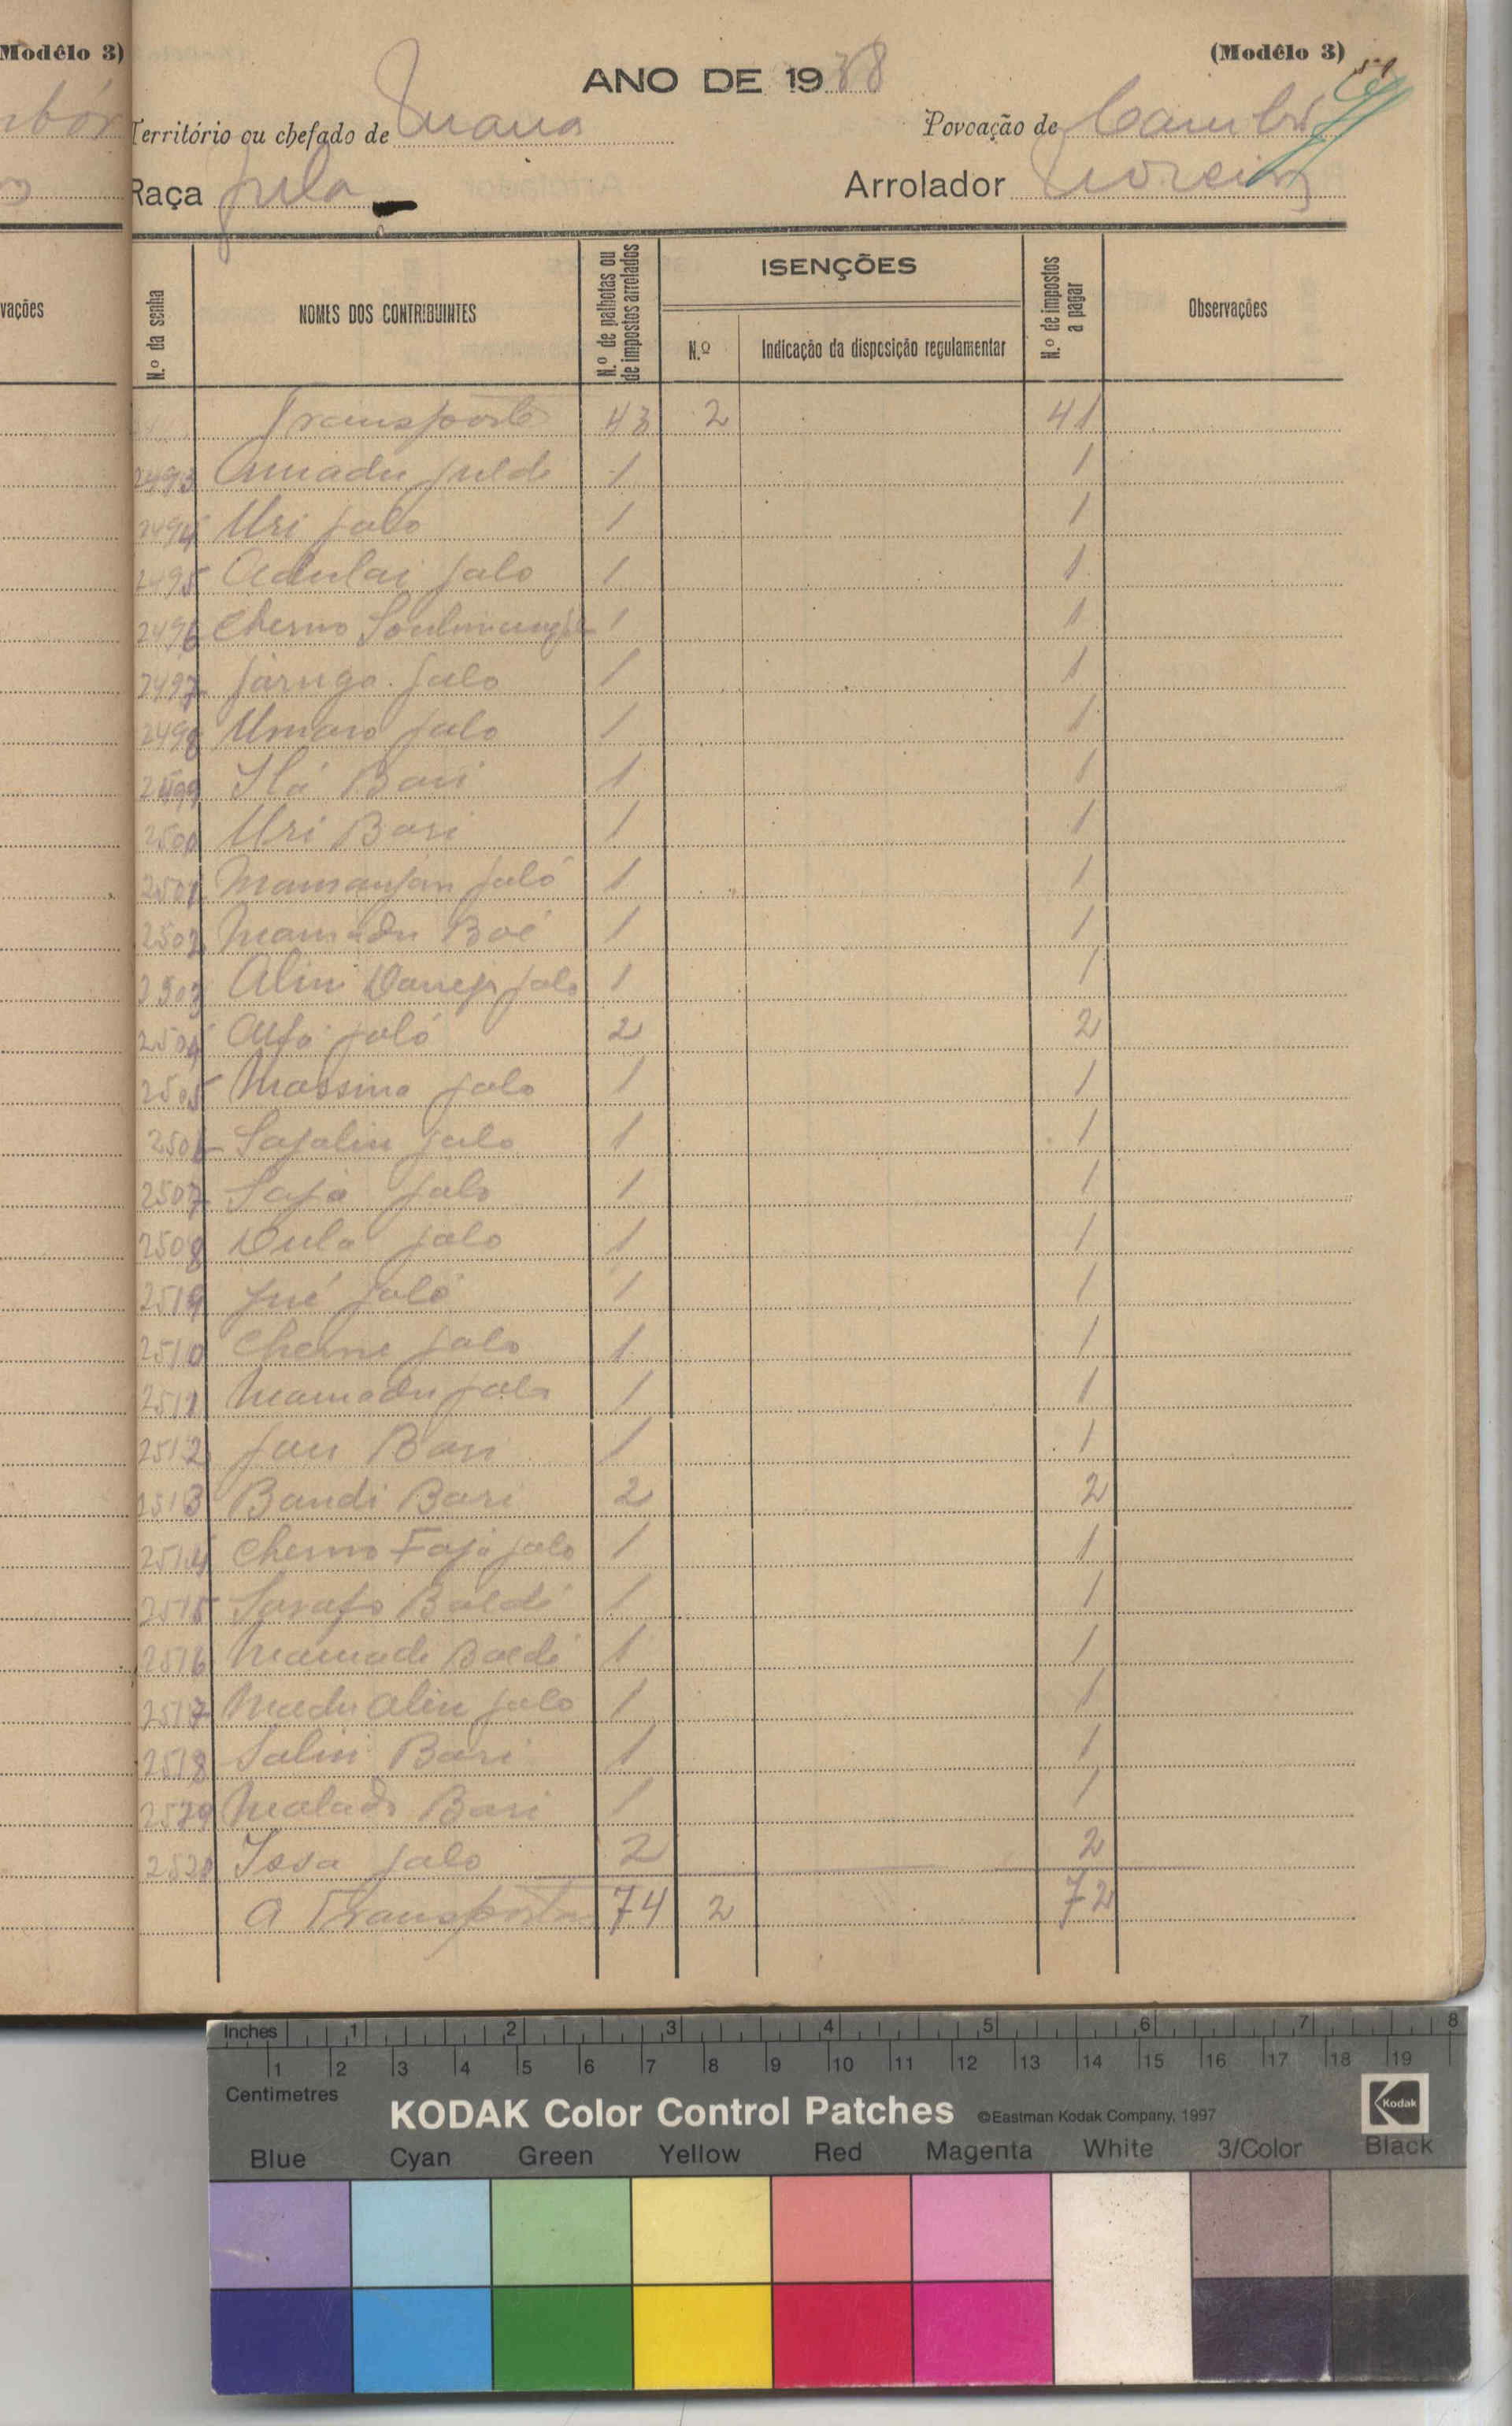 Modêlo 3)
(Modêlo 3)
ANO DE 1938
Território ou chefado de
Povoação de
Raça fula
Arrolador Moreira
vações
N.º da senha
NOMES DOS CONTRIBUINTES
N.º de palhotas ou de impostos arrolados
ISENÇÕES
N.º
Indicação da disposição regulamentar
N.º de impostos a pagar
Observações
Transporte 43 2 41
2493 Amadu Juldé 1 1
2494 Uri Jalo 1 1
2495 Adulai Jalo 1 1
2496 Cherno 1 1
2497 Jarugo Jalo 1 1
2498 Umaro Jalo 1 1
2499 Ilá Bari 1 1
2500 Uri Bari 1 1
2501 Mamanjan Jaló 1 1
2502 Mamadu Boé 1 1
2503 Jalo 1 1
2504 Alfa Jaló 2 2
2505 Massina Jalo 1 1
2506 Sajaliu Jalo 1 1
2507 Saja Jalo 1 1
2508 Dula Jalo 1 1
2519 Jaló 1 1
2510 Cherno Jalo 1 1
2511 Mamadu Jalo 1 1
2512 Bari 1 1
2513 Bandi Bari 2 2
2514 Cherno Jalo 1 1
2515 Baldé 1 1
2516 Mamadi Baldé 1 1
2517 Madu Aliu Jalo 1 1
2518 Saliu Bari 1 1
2519 Malado Bari 1 1
2520 Issa Jalo 2 2
A Transportar 74 2 72
Inches 1 2 3 4 5 6 7 8
1 2 3 4 5 6 7 8 9 10 11 12 13 14 15 16 17 18 19
Centimetres
KODAK Color Control Patches ©Eastman Kodak Company, 1997 Kodak
Blue Cyan Green Yellow Red Magenta White 3/Color Black